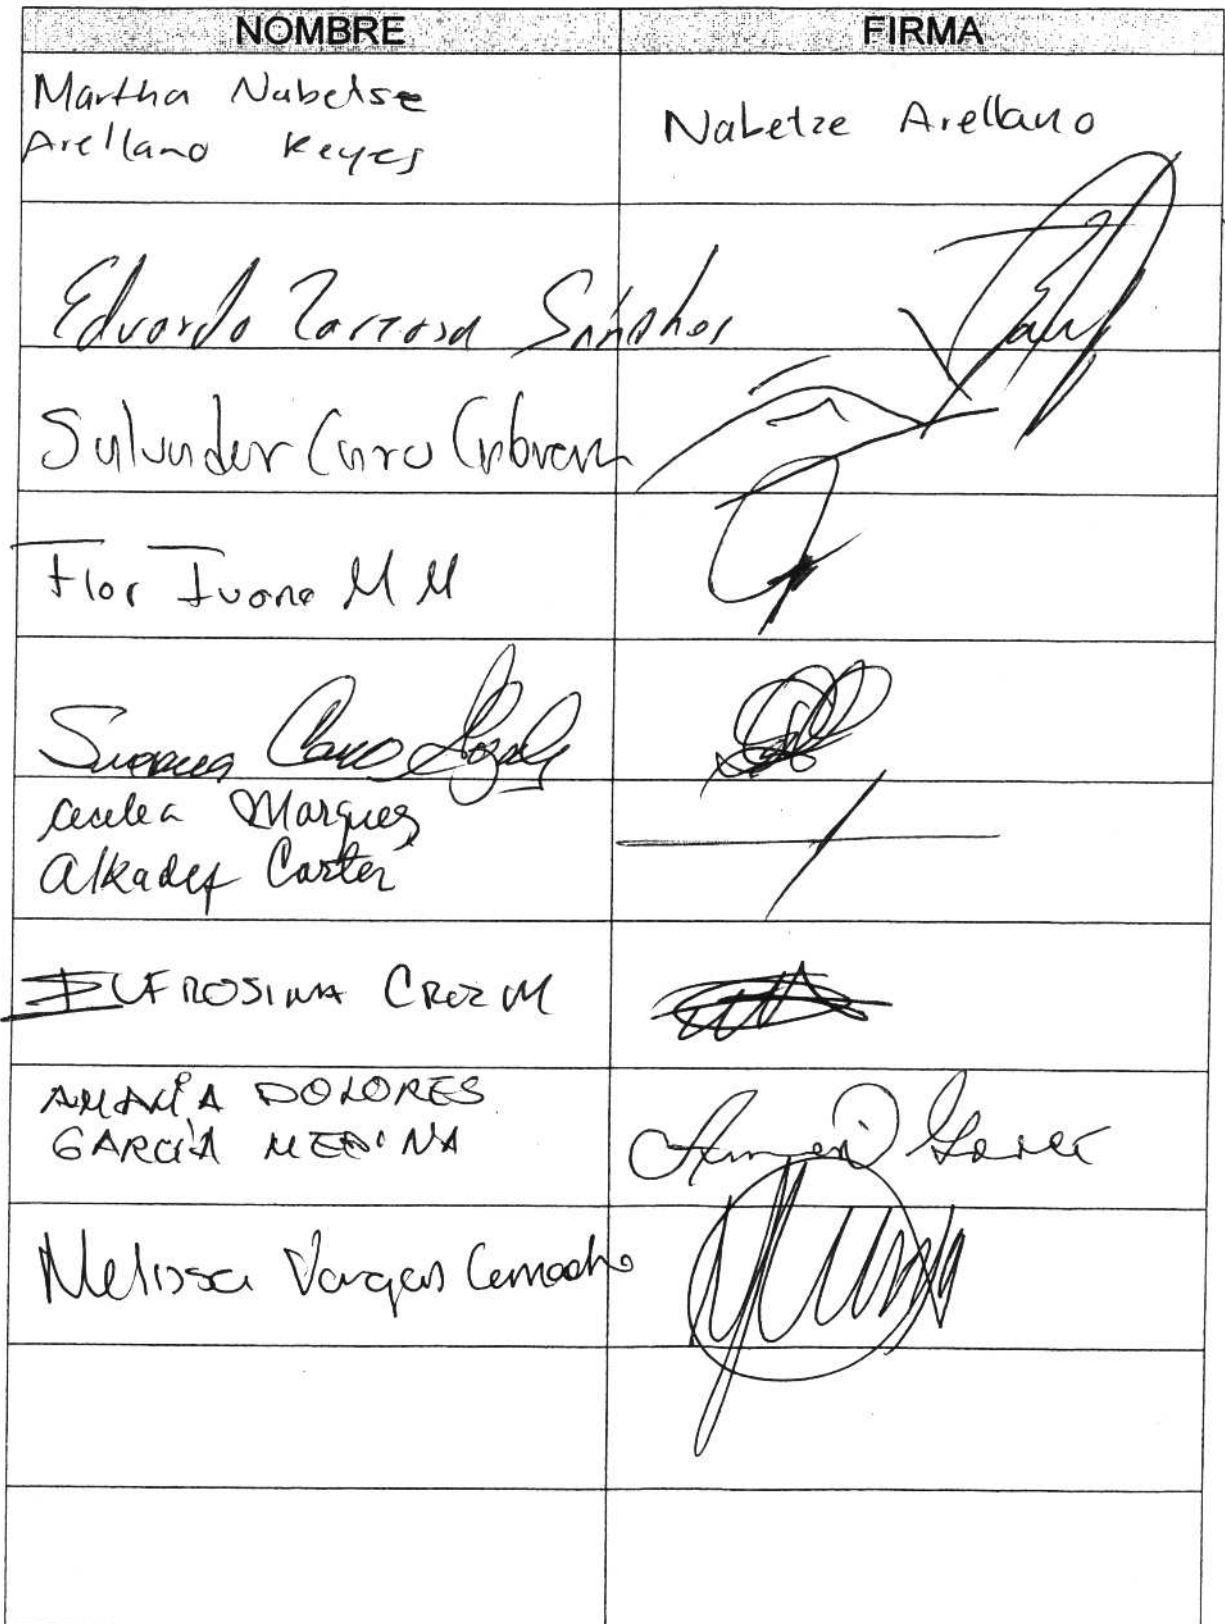 NOMBRE FIRMA
Martha Nabetse
Arellano Reyes
Nabetze Arellano
Eduardo Zarzosa Sánchez
Salvador Caro Cabrera
Flor Ivone M M
Susana Caro
Cecilia Márquez
Alkadef Cortés
EUFROSINA CRUZ M
AMALIA DOLORES
GARCÍA MEDINA
Melissa Vargas Camacho